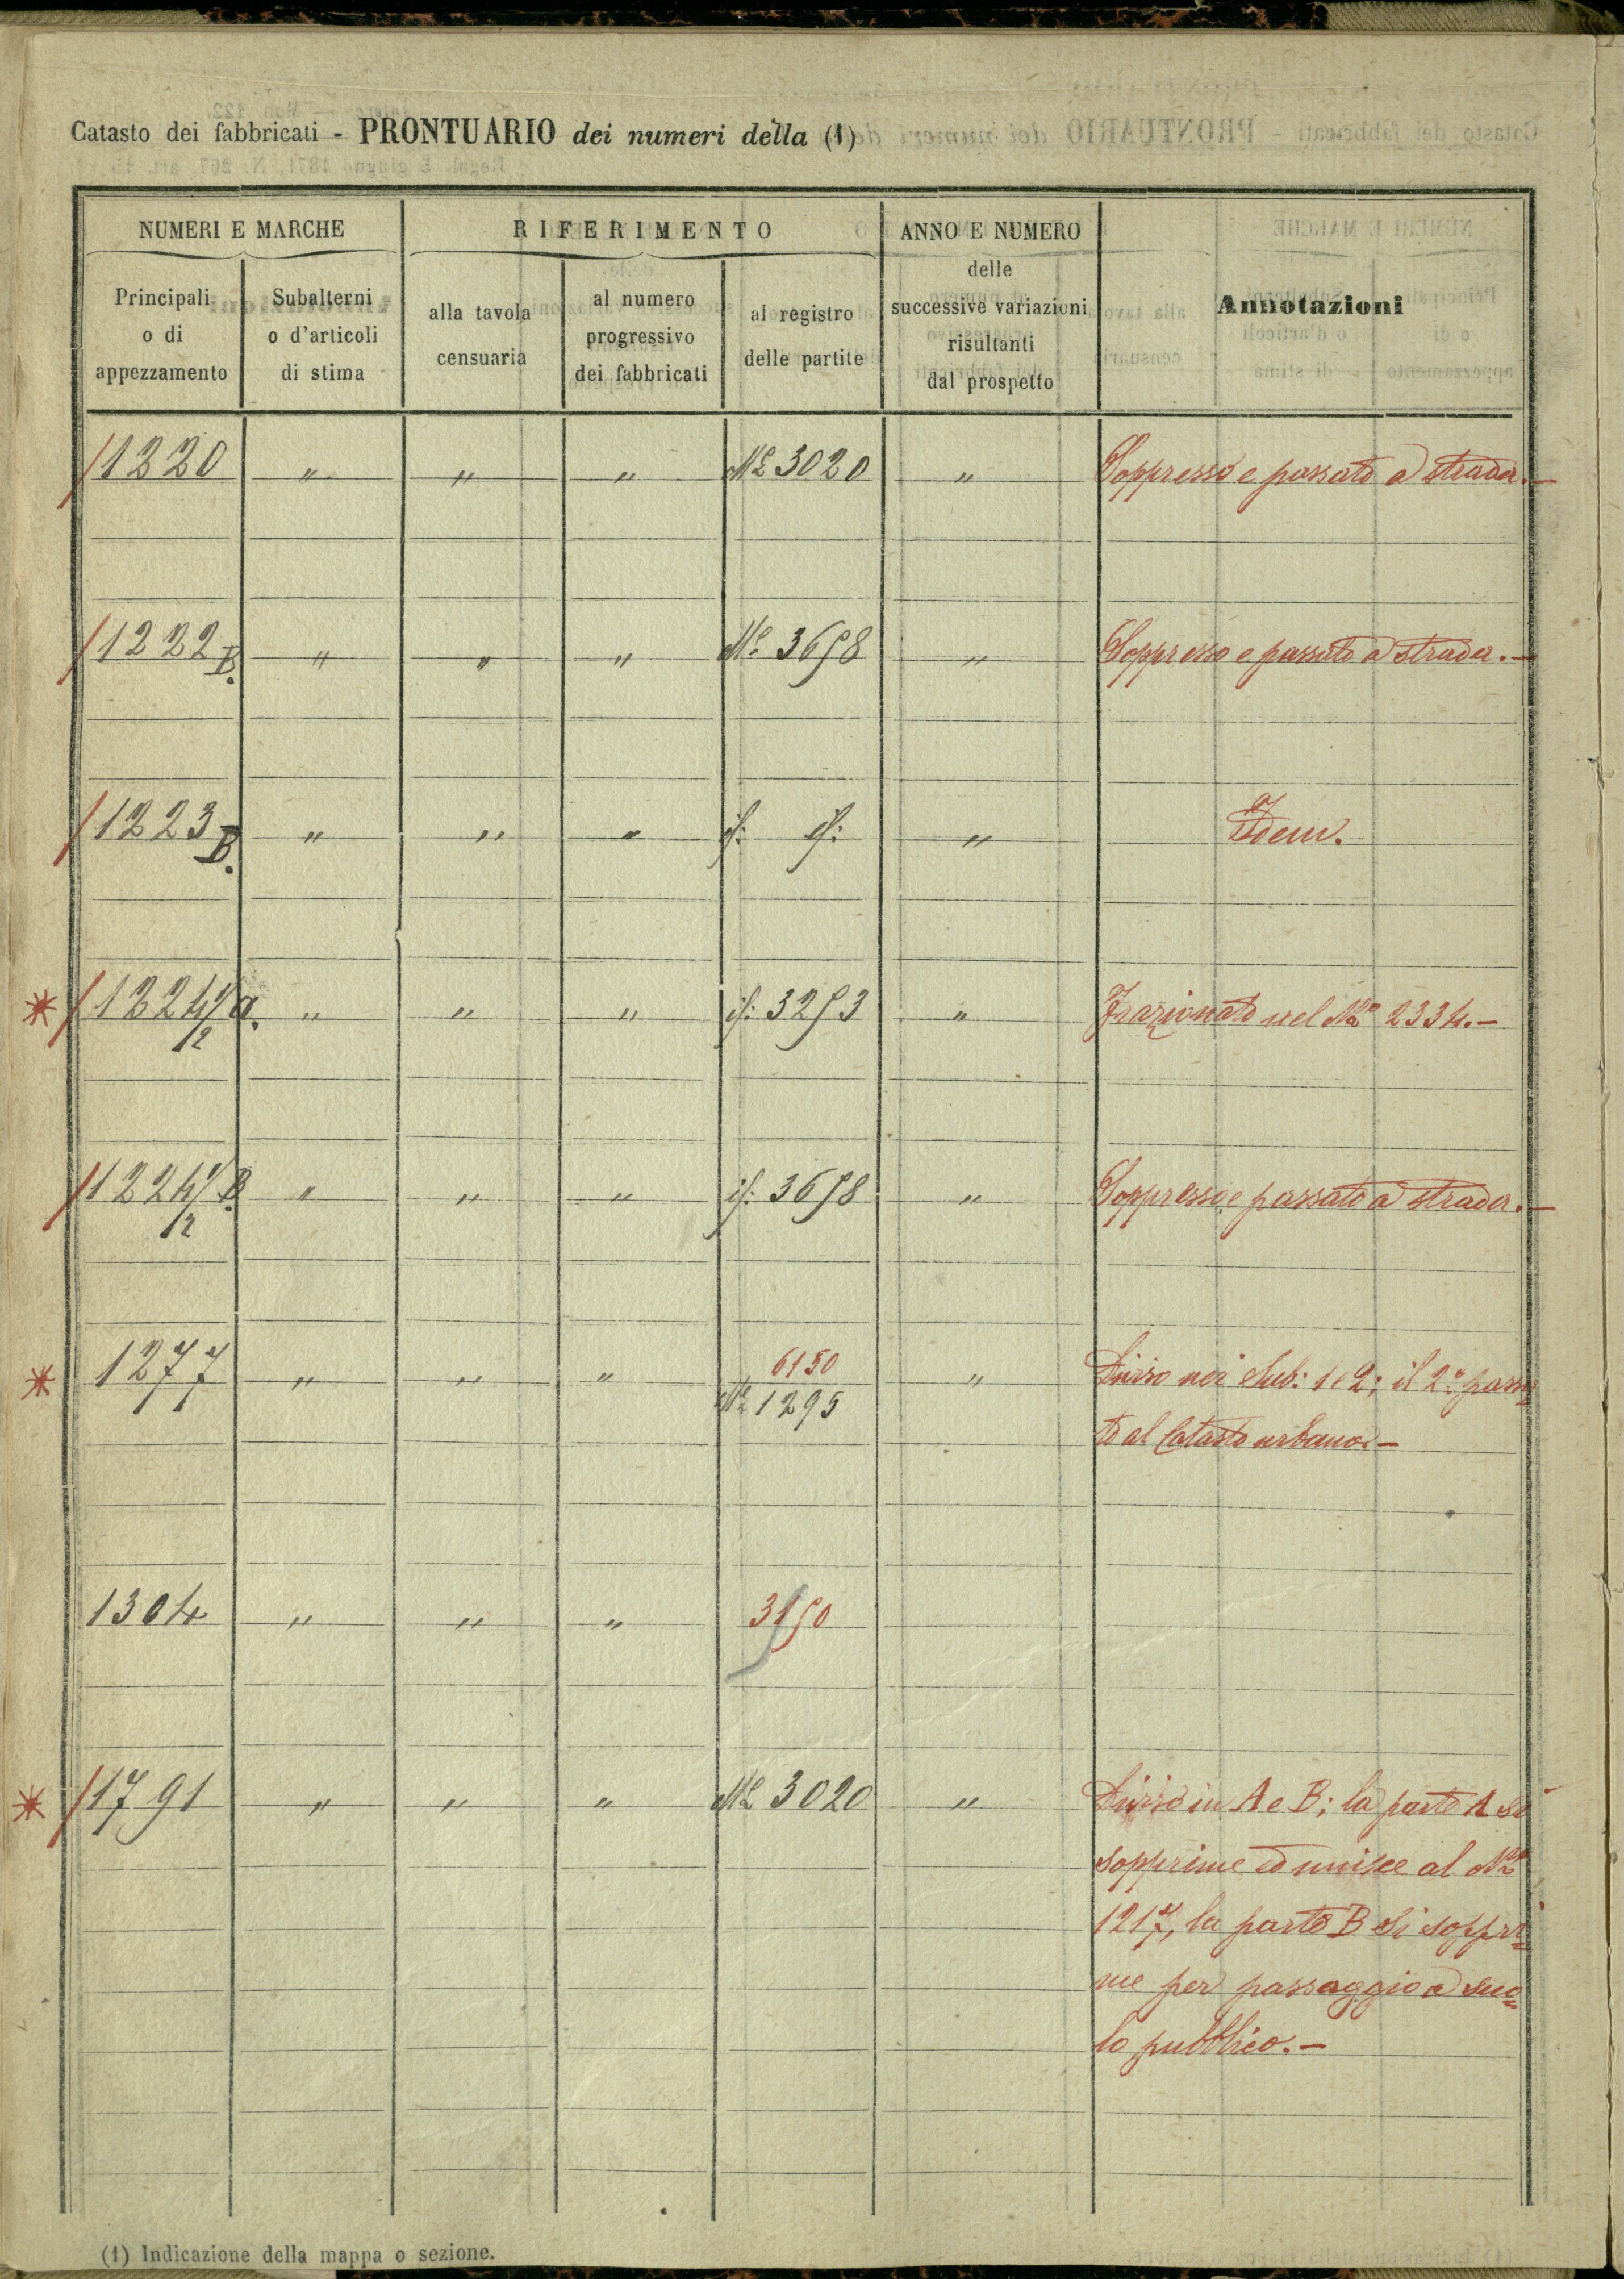 Catasto dei fabbricati - PRONTUARIO dei numeri della (1)
NUMERI E MARCHE RIFERIMENTO ANNO E NUMERO delle successive variazioni risultanti dal prospetto Annotazioni
Principali o di appezzamento Subalterni o d'articoli di stima alla tavola censuaria al numero progressivo dei fabbricati al registro delle partite
/1220 " " " Nº 3020 " Soppresso e passato a strada.—
/1222 B. " " " Nº 3658 " Soppresso e passato a strada.—
/1223 B. " " " id: id: " Idem.
* /1224 1/2 a. " " " id: 3253 " Frazionato nel Nº 2334.—
/1224 1/2 B. " " " id: 3658 " Soppresso e passato a strada.—
6150
* 1277 " " " Nº 1295 " Diviso nei Sub: 1 e 2; il 2º passa=
to al Catasto urbano.—
1304 " " " 3150
* /1791 " " " Nº 3020 " Diviso in A e B; la parte A si
sopprime ed unisce al Nº
1217, la parte B si soppri=
me per passaggio a suo=
lo pubblico.—
(1) Indicazione della mappa o sezione.